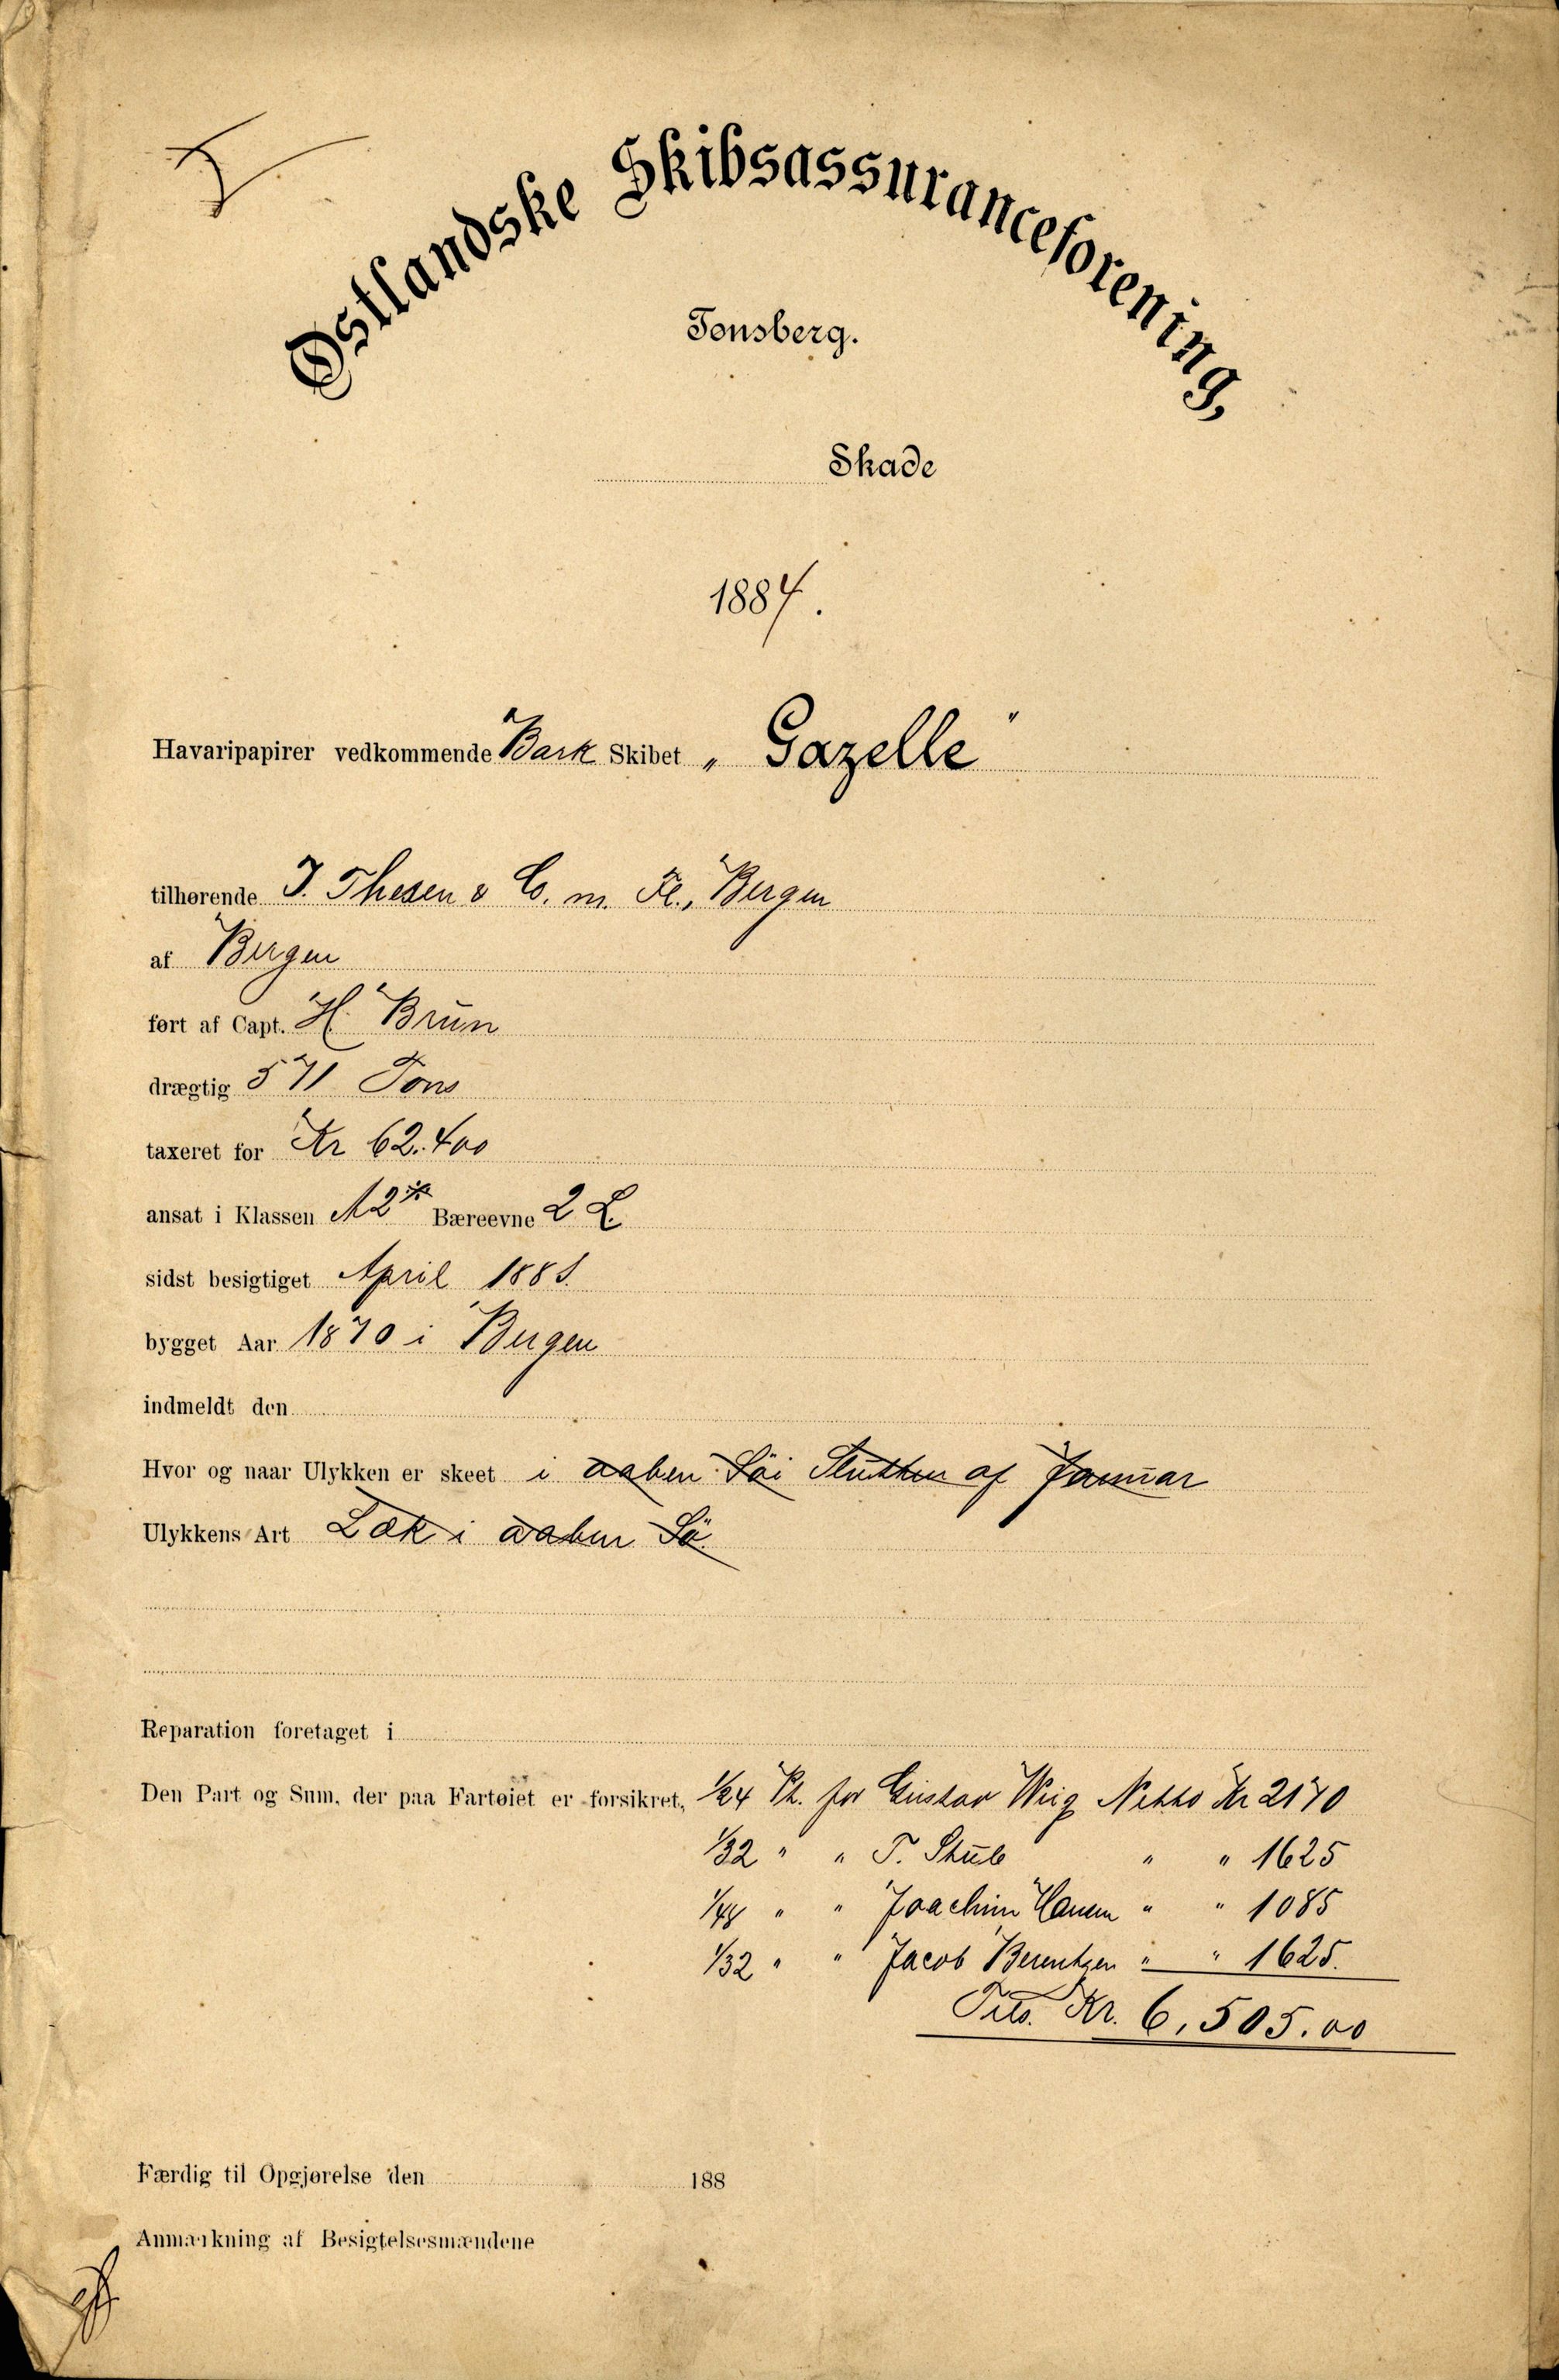 Østlandske Skibsassuranceforening,
Tønsberg.
Skade
1884.
Havaripapirer vedkommende Bark Skibet „Gazelle"
tilhørende J. Thesen & Co. m. Fl., Bergen
af Bergen
ført af Capt. H. Brun
drægtig 571 Tons
taxeret for Kr 62.400
ansat i Klassen A2* Bæreevne 2 L.
sidst besigtiget April 1881.
bygget Aar 1870 i Bergen
indmeldt den
Hvor og naar Ulykken er skeet i aaben Söi Slutten af Januar
Ulykkens Art Læk i aaben Sö.
Reparation foretaget i
Den Part og Sum, der paa Fartøiet er forsikret, 1/24 Pt. for Gustav Wiig Netto Kr 2170
1/32 " " T. Stub " " 1625
1/48 " " Joachim " " 1085
1/32 " " Jacob Berentzen " " 1625.
Tils. Kr. 6,505.00
Færdig til Opgjørelse den 188
Anmærkning af Besigtelsesmændene